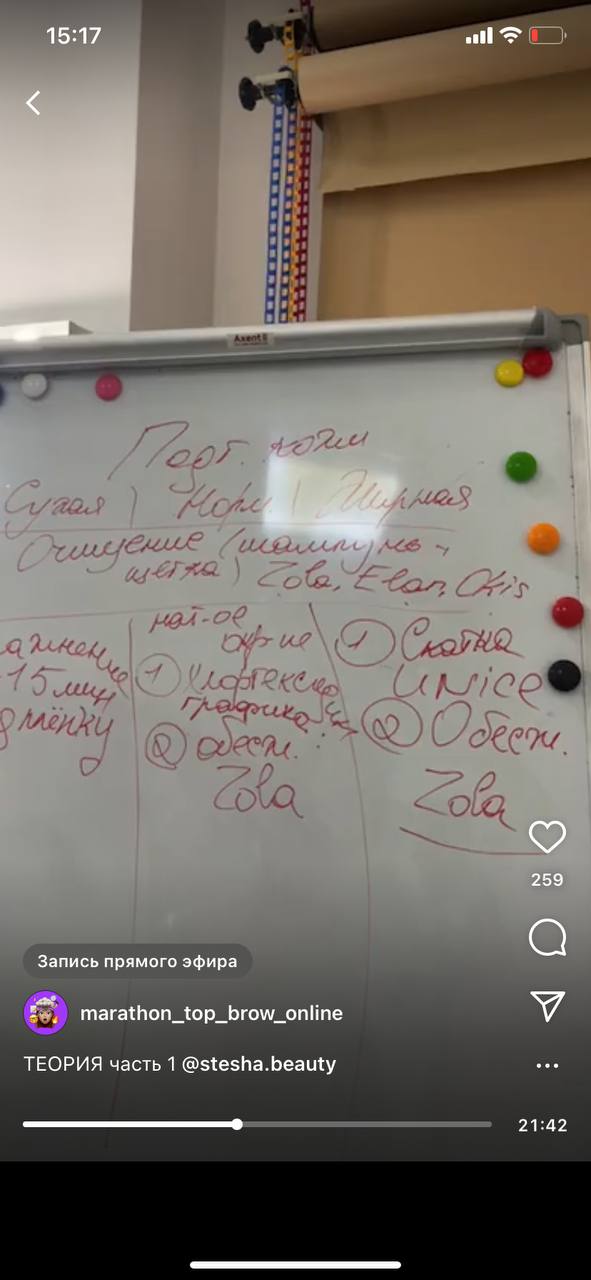 15:17
Axent
Подг. кожи
Сухая | Норм | Жирная
Очищение (шампунь +
щетка) Zola, Elan, Okis
нат-ое
окр-ие
1 Хлоргексидин
графика
2 обезж.
Zola
ажнение
15 мин
плёнку
1 Скатка
UNice
2 Обезж.
Zola
259
Запись прямого эфира
marathon_top_brow_online
ТЕОРИЯ часть 1 @stesha.beauty
21:42